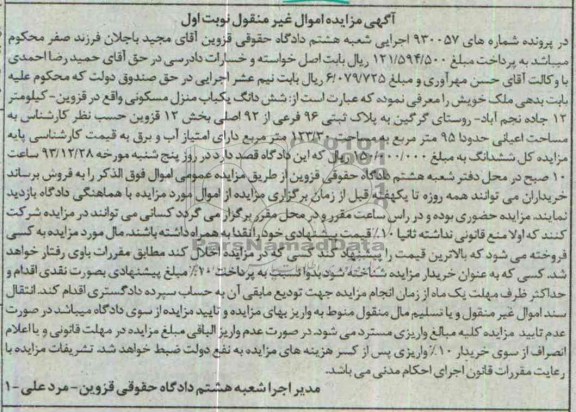 آگهی مزایده اموال غیر منقول نوبت اول
در پرونده شماره های ۹۳۰۰۵۷ اجرایی شعبه هشتم دادگاه حقوقی قزوین آقای مجید باجلان فرزند صفر محکوم
میباشد به پرداخت مبلغ ۱۲۱/۵۹۴/۵۰۰ ریال بابت اصل خواسته و خسارات دادرسی در حق آقای حمید رضا احمدی
با وکالت آقای حسن مهرآوری و مبلغ ۶/۰۷۹/۷۲۵ ریال بابت نیم عشر اجرایی در حق صندوق دولت که محکوم علیه
بابت بدهی ملک خویش را معرفی نموده که عبارت است از: شش دانگ یکباب منزل مسکونی واقع در قزوین- کیلومتر
۱۲ جاده نجم آباد- روستای گرگین به پلاک ثبتی ۹۶ فرعی از ۹۲ اصلی بخش ۱۲ قزوین حسب نظر کارشناس به
مساحت اعیانی حدودا ۹۵ متر مربع به مساحت ۱۲۳/۳۰ متر مربع دارای امتیاز آب و برق به قیمت کارشناسی پایه
مزایده کل ششدانگ به مبلغ ۱۵۰/۰۰۰/۰۰۰ ریال که این دادگاه قصد دارد در روز پنج شنبه مورخه ۹۳/۱۲/۲۸ ساعت
۱۰ صبح در محل دفتر شعبه هشتم دادگاه حقوقی قزوین از طریق مزایده عمومی اموال فوق الذکر را به فروش برساند
خریداران می توانند همه روزه تا یکهفته قبل از زمان برگزاری مزایده از اموال مورد مزایده با هماهنگی دادگاه بازدید
نمایند. مزایده حضوری بوده و در راس ساعت مقرر و در محل مقرر برگزار می گردد کسانی می توانند در مزایده شرکت
کنند که اولا منع قانونی نداشته ثانیا ۱۰٪ قیمت پیشنهادی خود را نقدا به همراه داشته باشند. مال مورد مزایده به کسی
فروخته می شود که بالاترین قیمت را پیشنهاد کند کسی که در مزایده اخلال کند مطابق مقررات باوی رفتار خواهد
شد. کسی که به عنوان خریدار مزایده شناخته شود بدوا نسبت به پرداخت ۱۰٪ مبلغ پیشنهادی بصورت نقدی اقدام و
حداکثر ظرف مهلت یک ماه از زمان انجام مزایده جهت تودیع مابقی آن به حساب سپرده دادگستری اقدام کند. انتقال
سند اموال غیر منقول و یا تسلیم مال منقول منوط به واریز بهای مزایده و تایید مزایده از سوی دادگاه میباشد در صورت
عدم تایید مزایده کلیه مبالغ واریزی مسترد می شود. در صورت عدم واریز الباقی مبلغ مزایده در مهلت قانونی و یا اعلام
انصراف از سوی خریدار ۱۰٪ واریزی پس از کسر هزینه های مزایده به نفع دولت ضبط خواهد شد. تشریفات مزایده با
رعایت مقررات قانون اجرای احکام مدنی می باشد.
مدیر اجرا شعبه هشتم دادگاه حقوقی قزوین- مرد علی -۱
ParsNamadData